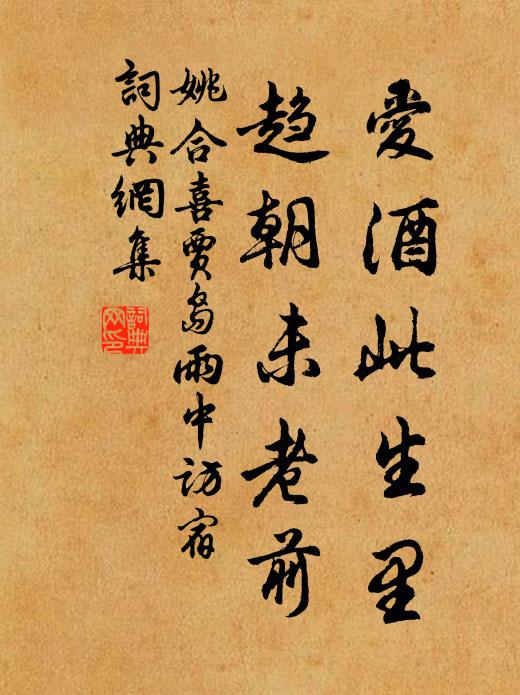 愛酒此生里
趋朝未老前
姚合喜賈島雨中訪宿
詞典網集
詞典網印